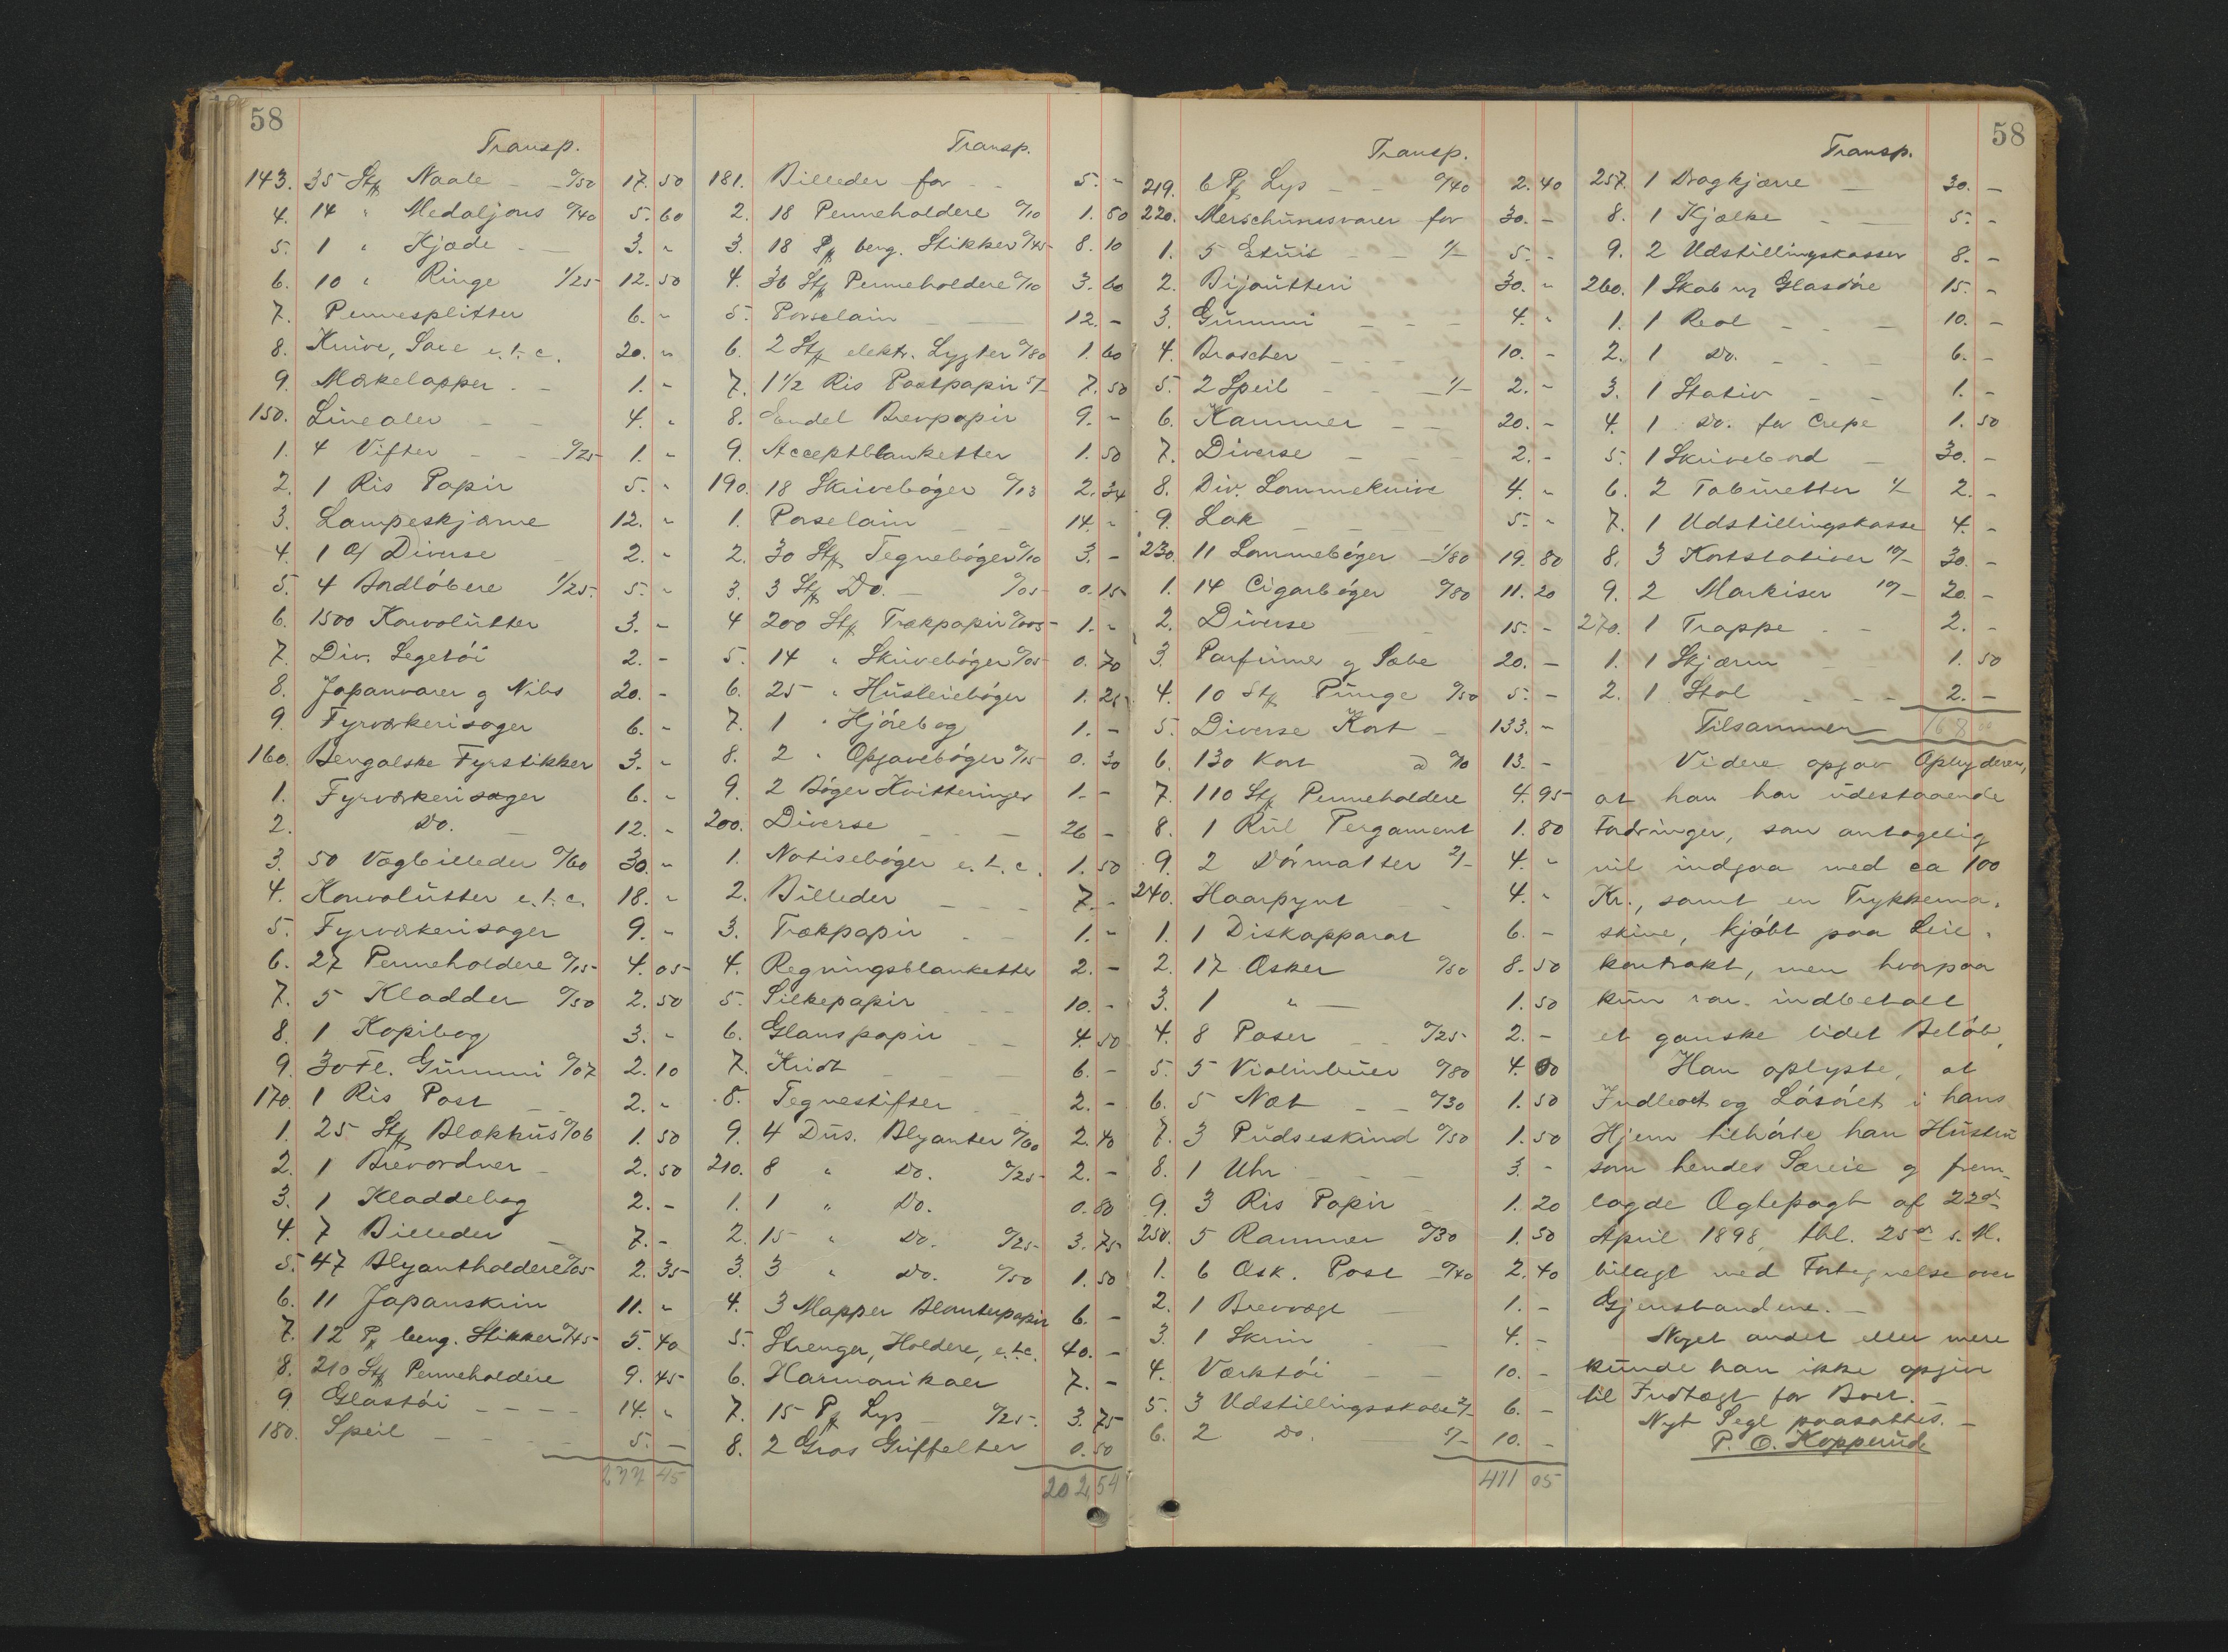 58
Transp.
143. 35 Stk Naale - - 0/50 17.50
4. 14 " Medaljons 0/40 5.60
5. 1 " Kjæde - — 3. "
6. 10 " Ringe 1/25 12.50
7. Pennesplitter 6. "
8. Knive, Saxe e.t.c. 20. "
9. Mærkelapper - - 1. "
150. Linealer - - 4. "
1. 4 Vifter - - 0/25 1. "
2. 1 Ris Papir 5. "
3. Lampeskjærme 12. "
4. 1 Diverse 2. "
5. 4 Bordløbere 1/25. 5. "
6. 1500 Konvolutter 3. -
7. Div. Legetøi 2. -
8. Japanvarer og Nibs 20. -
9. Fyrværkerisager 6. -
160. Bengalske Fyrstikker 3. "
1. Fyrværkerisager 6. "
2. Do. — 12. "
3. 50 Vægbilleder 0/60 30. "
4. Konvolutter e.t.c. 18. "
5. Fyrværkerisager 9. "
6. 27 Penneholdere 0/15 4.05
7. 5 Kladder 0/50 2.50
8. 1 Kopibog 3. "
9. 30 Fl. Gummi 0/07 2.10
170. 1 Ris Post — 2. "
1. 25 Stk Blækhus 0/06 1.50
2. 1 Brevordner - 2.50
3. 1 Kladdebog 2. -
4. 7 Billeder — 7. -
5. 47 Blyantholdere 0/05 2.35
6. 11 Japanskrin 11. "
7. 12 Pk beng. Stikker 0/45 5.40
8. 210 Stk Penneholdere 9.45
9. Glastøi - - - - 14. "
180. Speil - - - - 5. -
277 45
Transp.
181. Billeder for - - 5. "
2. 18 Penneholdere 0/10 1.80
3. 18 Pk beng. Stikker 0/45 8.10
4. 36 Stk Penneholdere 0/10 3.60
5. Porselain — 12. -
6. 2 Stk elektr. Lygter 0/80 1.60
7. 1 1/2 Ris Postpapir 5/- 7.50
8. Endel Brevpapir 9. -
9. Acceptblanketter 1.50
190. 18 Skrivebøger 0/13 2.34
1. Porselain — 14. "
2. 30 Stk Tegnebøger 0/10 3. -
3. 3 Stk Do. — 0/05 0.15
4 200 Stk Trækpapir 0/005 1. "
5. 14 " Skrivebøger 0/05 0.70
6. 25 " Husleiebøger 1.25
7. 1 " Hjørebog 1. -
8. 2 " Opgavebøger 0/15 0.30
9. 2 Bøger Kvitteringer 1. -
200. Diverse - - - 26 -
1. Notisebøger e.t.c. 1.50
2. Billeder - - - 7. -
3. Trækpapir - - 1. "
4. Regningsblanketter 2. -
5. Silkepapir - - - 10. -
6. Glanspapir - - 4.50
7. Kridt - - - 6. -
8. Tegnestifter - - 2. -
9. 4 Dus. Blyanter 0/60 2.40
210. 8 " Do. 0/25 2. -
1. 1 " Do. 0.80
2. 15 " Do. 0/25 3.75
3. 3 " Do. 0/50 1.50
4. 3 Mapper Blomterpapir 6. -
5. Strenger, Holdere, e.t.c. 40. -
6. Harmonikaer 7. -
7. 15 Pk Lys — 0/25. 3.75
8. 2 Gros Griffelter 0.50
202 54
58
Transp.
219. 6 Pk Lys - - 0/40 2.40
220. Merschumsvarer for 30. -
1. 5 Etuis - - 1/- 5. -
2. Bijouteri 30. "
3. Gummi - - - 4. "
4. Broscher - - - 10. -
5. 2 Speil - - 1/- 2. "
6. Kammer - - 20. -
7. Diverse - - - 2. -
8. Div. Lommeknive 4. "
9. Lak - - - 5. "
230. 11 Lommebøger 1/80 19.80
1. 14 Cigarbøger 0/80 11.20
2. Diverse — 15. -
3. Parfumer og Sæbe 20. -
4. 10 Stk Punge 0/50 5. -
5. Diverse Kort - 133. -
6. 130 Kort a 0/10 13. -
7. 110 Stk Penneholdere 4.95
8. 1 Rul Pergament 1.80
9. 2 Dørmatter 2/- 4. "
240. Haarpynt - 4. "
1. 1 Diskapparat 6. -
2. 17 Æsker 0/50 8.50
3. 1 " — 1.50
4. 8 Poser - - 0/25 2. -
5. 5 Violinbuer 0/80 4.00
6. 5 Næt - - 0/30 1.50
7. 3 Pudseskind 0/50 1.50
8. 1 Uhr - - - 3. -
9. 3 Ris Papir 1.20
250. 5 Rammer 0/30 1.50
1. 6 Æsk. Post 0/40 2.40
2. 1 Brevvægt — 1. -
3. 1 Skrin - - 4. -
4. Værktøi - - 10. -
5. 3 Udstillingsskabe 2/- 6. -
6. 2 Do. — 5/- 10. -
411 05
Transp.
257. 1 Dragkjærre — 30. -
8. 1 Kjælke - — 5. -
9. 2 Udstillingskasser 8. -
260. 1 Skab m/ Glasdøre 15. -
1. 1 Reol - - - 10. -
2. 1 Do. - - - 6. -
3. 1 Stativ - - 1. -
4. 1 Do. for Crepe 1.50
5. 1 Skrivebord — 30. -
6. 2 Taburetter 1/- 2. -
7. 1 Udstillingskasse 4. -
8. 3 Kortstativer 10/- 30. -
9. 2 Markiser 10/- 20. -
270. 1 Trappe - - 2. -
1. 1 Skjærm - - 1.50
2. 1 Stol - - - 2. -
Tilsammen 168 00
Videre opgav Opbyderen,
at han har udestaaende
Fordringer, som antagelig
vil indgaa med ca 100
Kr., samt en Trykkema-
skine, kjøbt paa Leie-
kontrakt, men hvorpaa
kun var indbetalt
et ganske lidet Beløb.
Han oplyste, at
Indboet og Løsøret i hans
Hjem tilhørte han Hustru
som hendes Særeie og frem-
lagde Ægtepagt af 22de
April 1898, thl. 25de s.M.
bilagt med Fortegnelse over
Gjenstandene. -
Noget andet eller mere
kunde han ikke opgive
til Indtægt for Boet. -
Nyt Segl paasattes. -
P. O. Kopperud